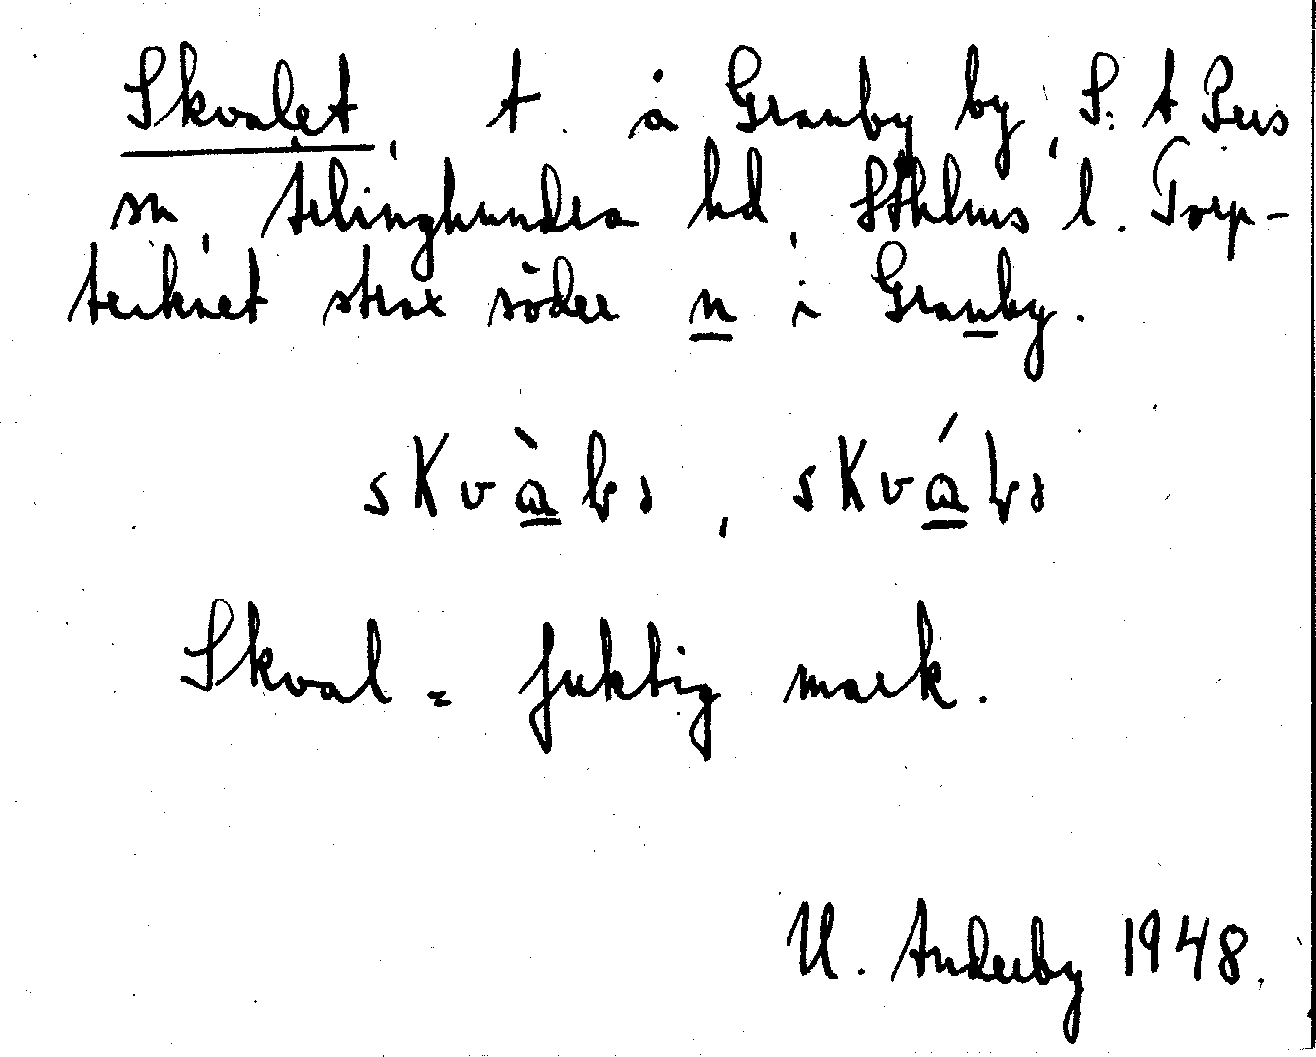 Skvalet, t. å Granby by, S:t Pers
sn, Ärlinghundra hd, Sthlms l. Torp-
tecknet strax söder n i Granby.
Skval = fuktig mark.
U. Anderby 1948.